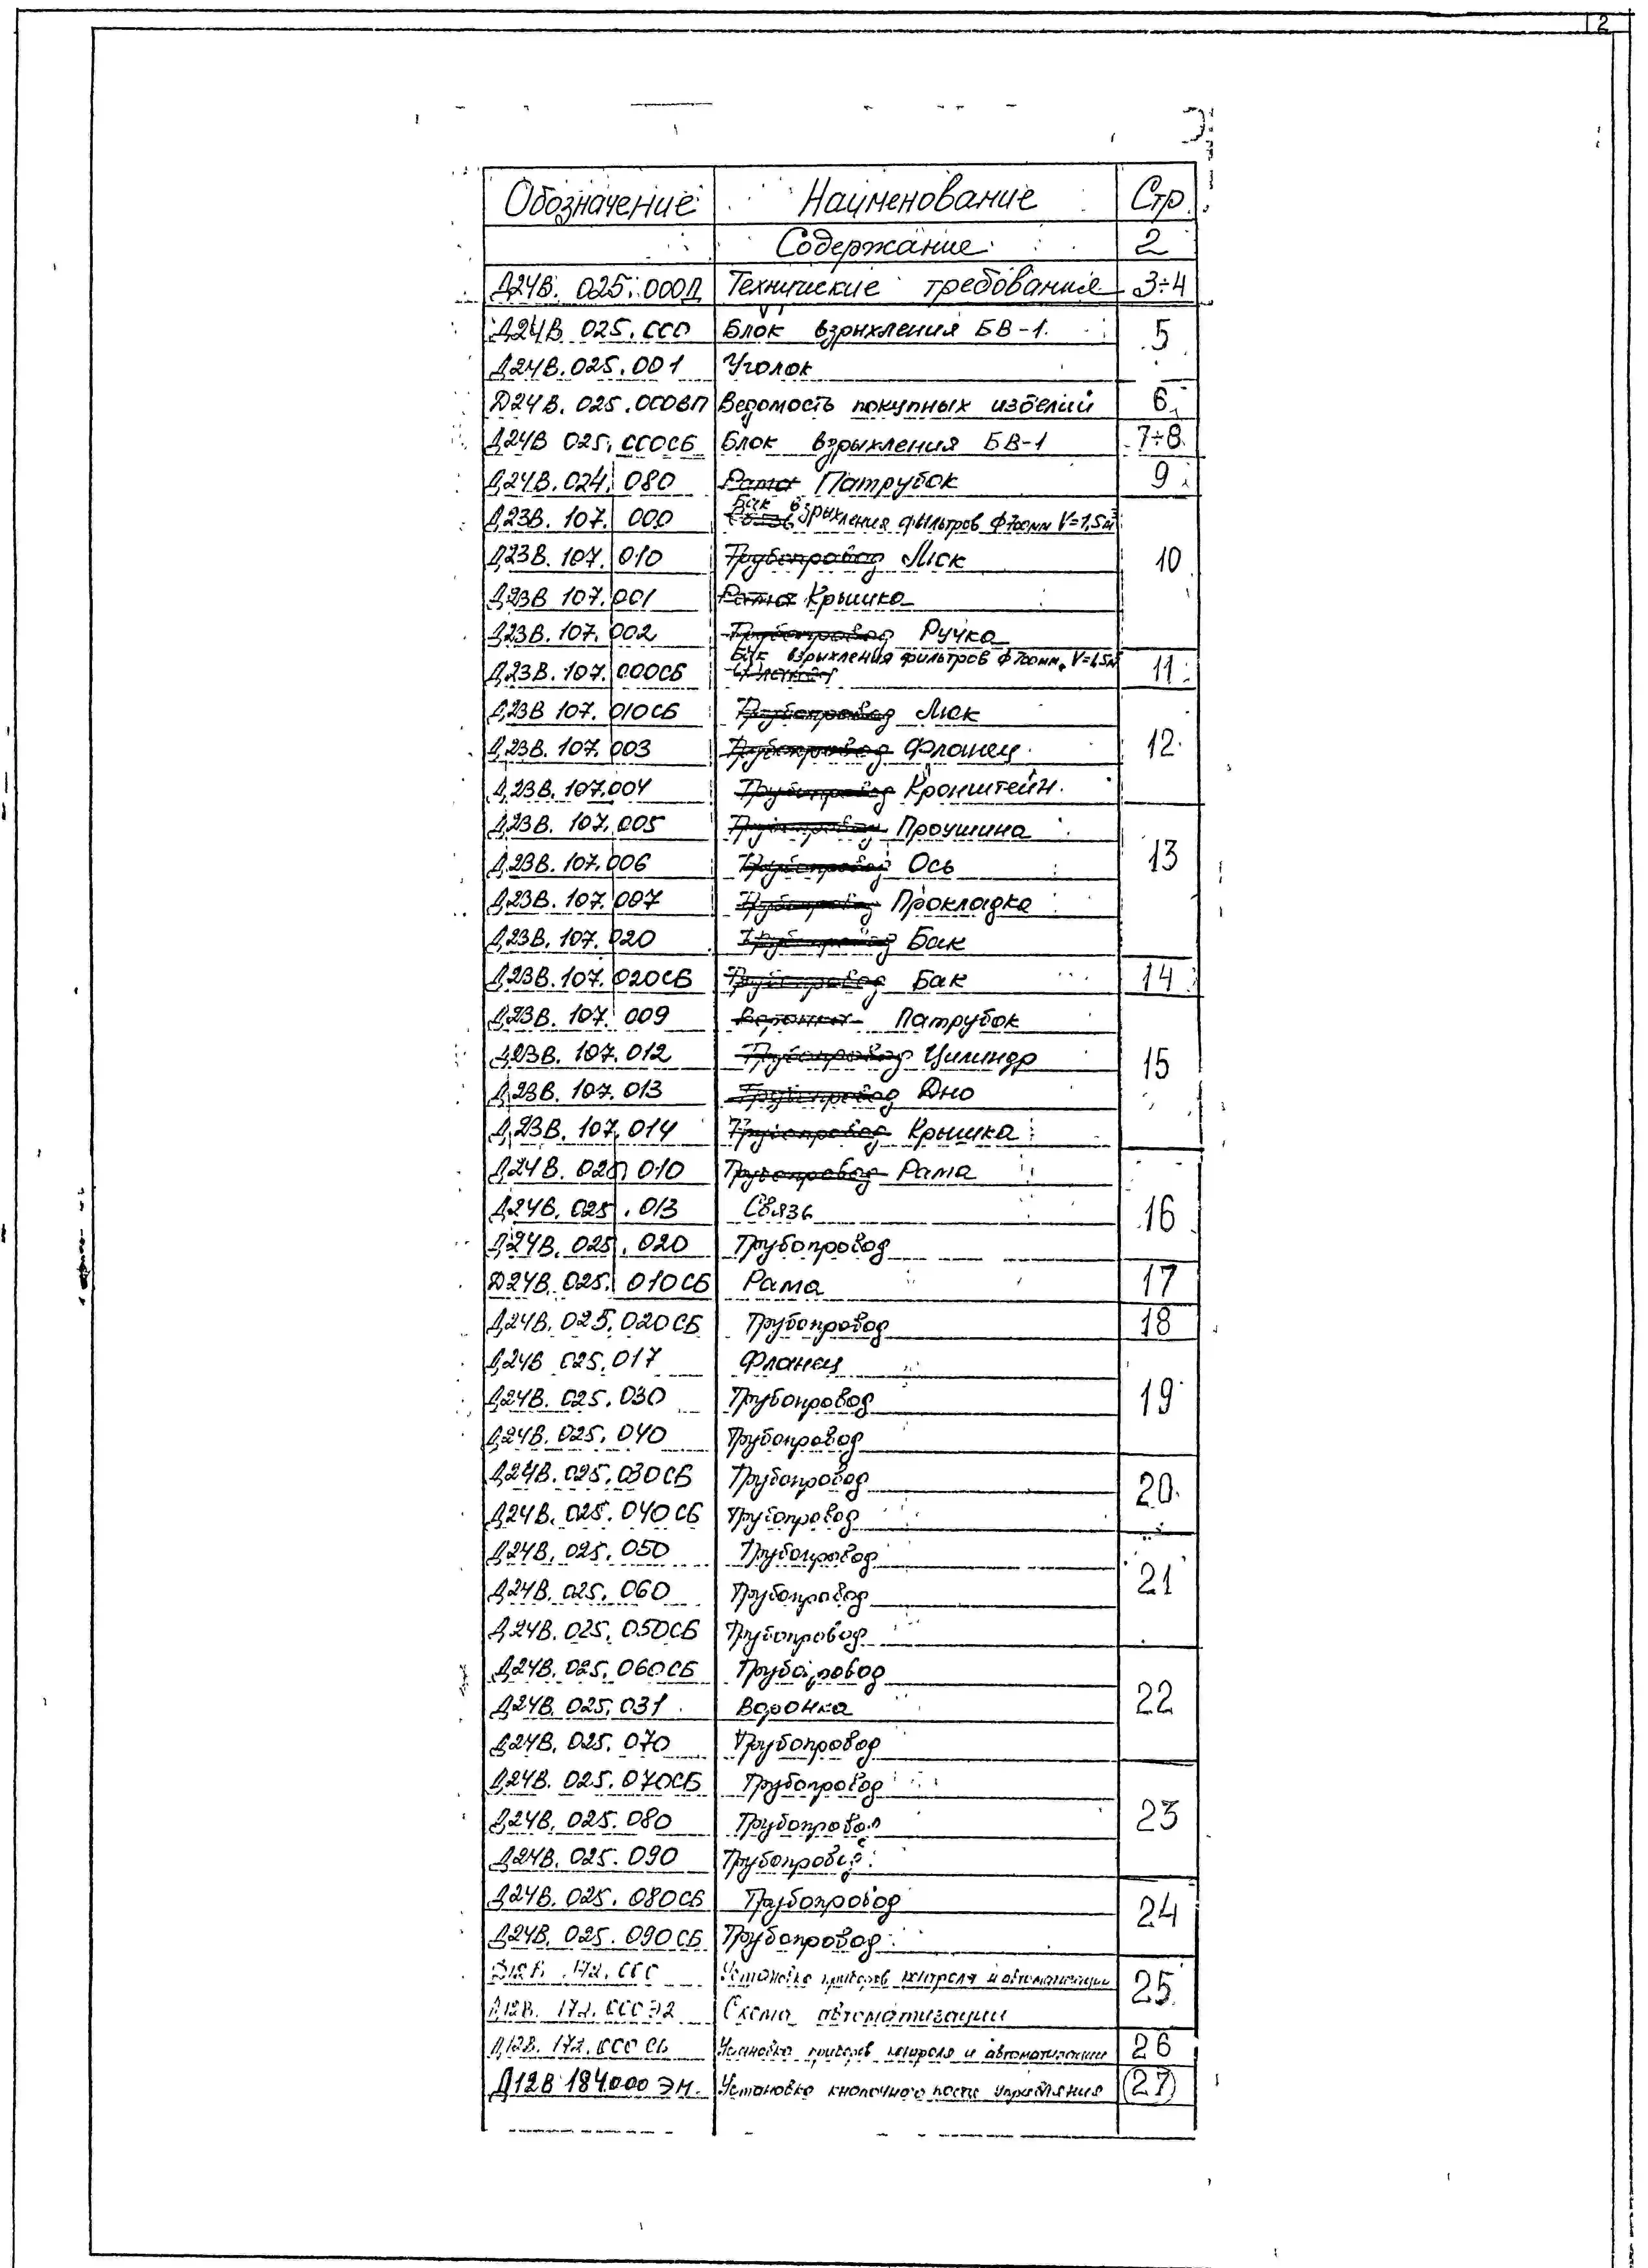 2
Обозначение Наименование Стр.
Содержание 2
Д24В. 025. 000Д Технические требования 3÷4
Д24В. 025. 000 Блок взрыхления БВ-1 5
Д24В. 025. 001 Уголок
Д24В. 025. 000ВП Ведомость покупных изделий 6
Д24В 025. 000СБ Блок взрыхления БВ-1 7÷8
Д24В. 024. 080 Рама Патрубок 9
Д23В. 107. 000 Бак взрыхления фильтров Ф700мм V=1,5м³
Д23В. 107. 010 Трубопровод Люк 10
Д23В 107. 001 Рама Крышка
Д23В. 107. 002 Трубопровод Ручка
Д23В. 107. 000СБ Бак взрыхления фильтров Ф700мм, V=1,5м³ 11
Д23В 107. 010СБ Трубопровод Люк
Д23В. 107. 003 Трубопровод Фланец 12
Д23В. 107.004 Трубопровод Кронштейн
Д23В. 107. 005 Трубопровод Проушина
Д23В. 107. 006 Трубопровод Ось 13
Д23В. 107. 007 Трубопровод Прокладка
Д23В. 107. 020 Трубопровод Бак
Д23В. 107. 020СБ Трубопровод Бак 14
Д23В. 107. 009 Воронка Патрубок
Д23В. 107. 012 Трубопровод Цилиндр 15
Д23В. 107. 013 Трубопровод Дно
Д23В. 107. 014 Трубопровод Крышка
Д24В. 025 010 Трубопровод Рама
Д24В. 025. 013 Связь 16
Д24В. 025. 020 Трубопровод
Д24В. 025. 010СБ Рама 17
Д24В. 025. 020СБ Трубопровод 18
Д24В 025. 017 Фланец
Д24В. 025. 030 Трубопровод 19
Д24В. 025. 040 Трубопровод
Д24В. 025. 030СБ Трубопровод 20
Д24В. 025. 040СБ Трубопровод
Д24В. 025. 050 Трубопровод
Д24В. 025. 060 Трубопровод 21
Д24В. 025. 050СБ Трубопровод
Д24В. 025. 060СБ Трубопровод
Д24В. 025. 031 Воронка 22
Д24В. 025. 070 Трубопровод
Д24В. 025. 070СБ Трубопровод
Д24В. 025. 080 Трубопровод 23
Д24В. 025. 090 Трубопровод
Д24В. 025. 080СБ Трубопровод 24
Д24В. 025. 090СБ Трубопровод
Д12В. 172. 000 Установка приборов контроля и автоматизации 25
Д12В. 172. 000Э2 Схема автоматизации
Д12В. 172. 000 СБ Установка приборов контроля и автоматизации 26
Д12В 184.000 ЭМ. Установка кнопочного поста управления 27